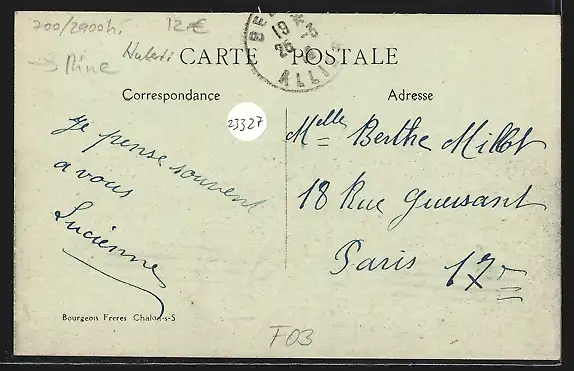 700/2900hi
12 €
Mine
Huberti
CARTE POSTALE
19
25
ALLIE
Correspondance
Adresse
23327
Je pense souvent
a vous
Lucienne
Melle Berthe Millot
18 Rue Guersant
Paris 17e
Bourgeois Freres Chalon-s-S
F03